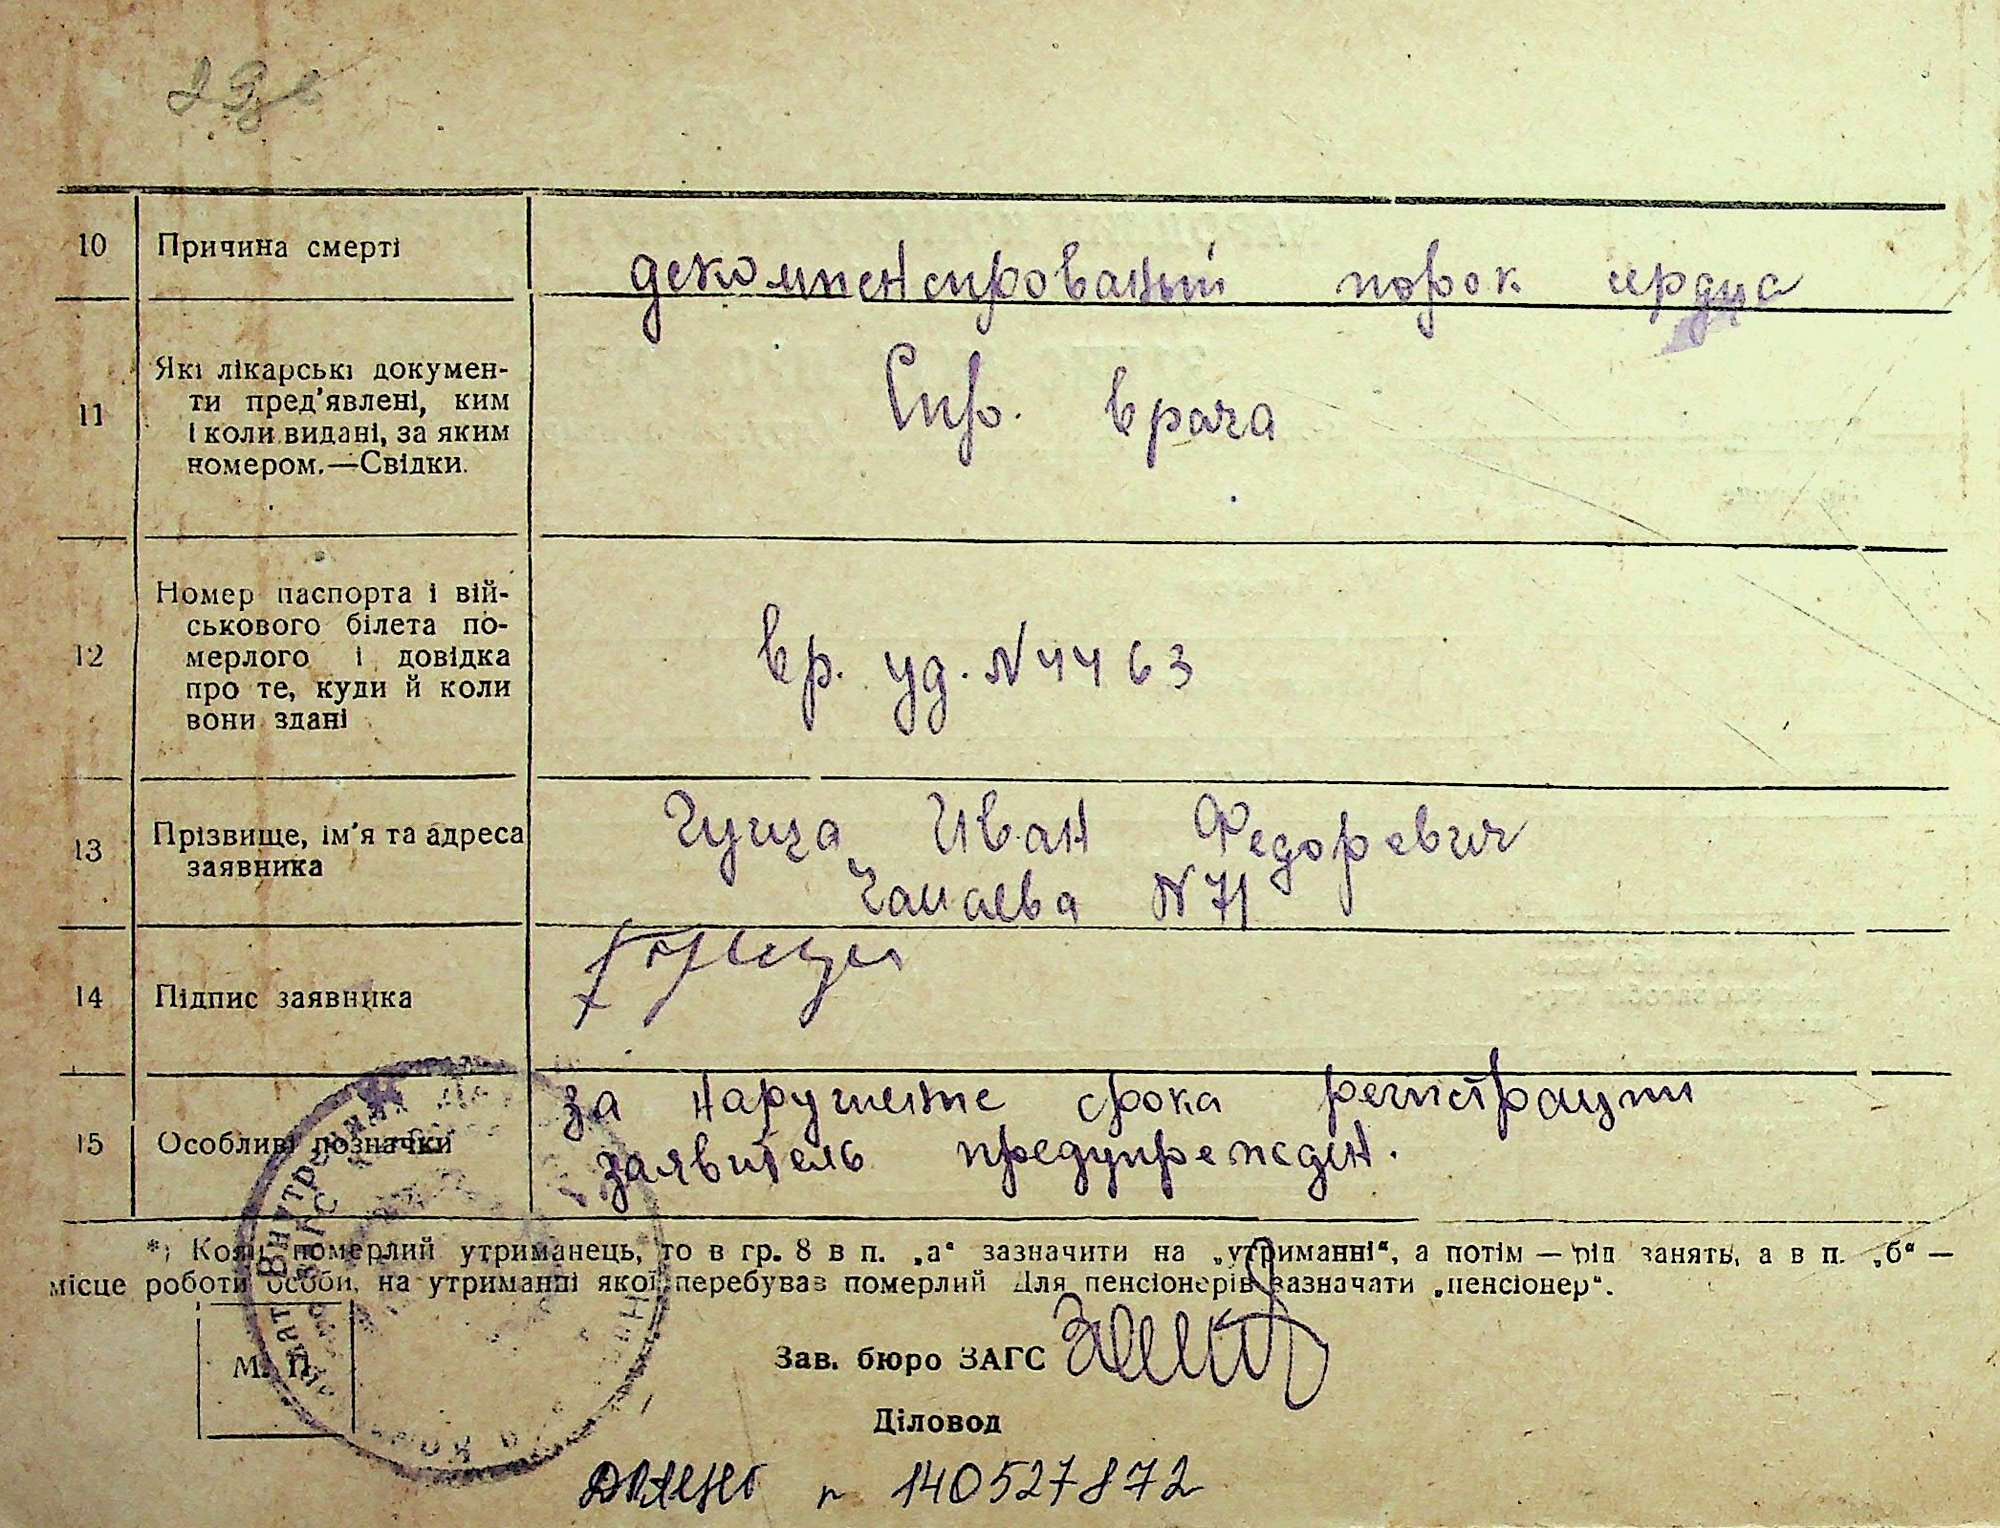 10 Причина смерті декомпенсированый порок сердца
11 Які лікарські докумен-
ти пред'явлені, ким
і коли видані, за яким
номером.—Свідки.
Спр. врача
12 Номер паспорта і вій-
ськового білета по-
мерлого і довідка
про те, куди й коли
вони здані
вр. уд. N 4463
13 Прізвище, ім'я та адреса
заявника
Гуща Иван Федоревич
Чапаева N 71
14 Підпис заявника
15 Особливі позначки
за нарушение срока регистрации
заявитель предупрежден.
*) Коли померлий утриманець, то в гр. 8 в п. „а“ зазначити на „утриманні“, а потім — рід занять, а в п. „б“ —
місце роботи особи, на утриманні якої перебував померлий Для пенсіонерів зазначати „пенсіонер“.
М. П.
Зав. бюро ЗАГС
Діловод
140527872